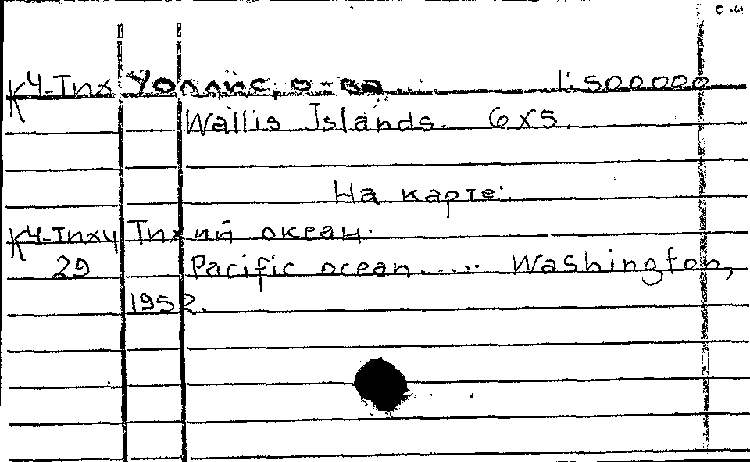 К4-Тих Уоллис, о-ва 1:500000
Wallis Islands. 6x5.
На карте:
К4-Тих4 Тихий океан.
29 Pacific ocean..... Washington,
1952.